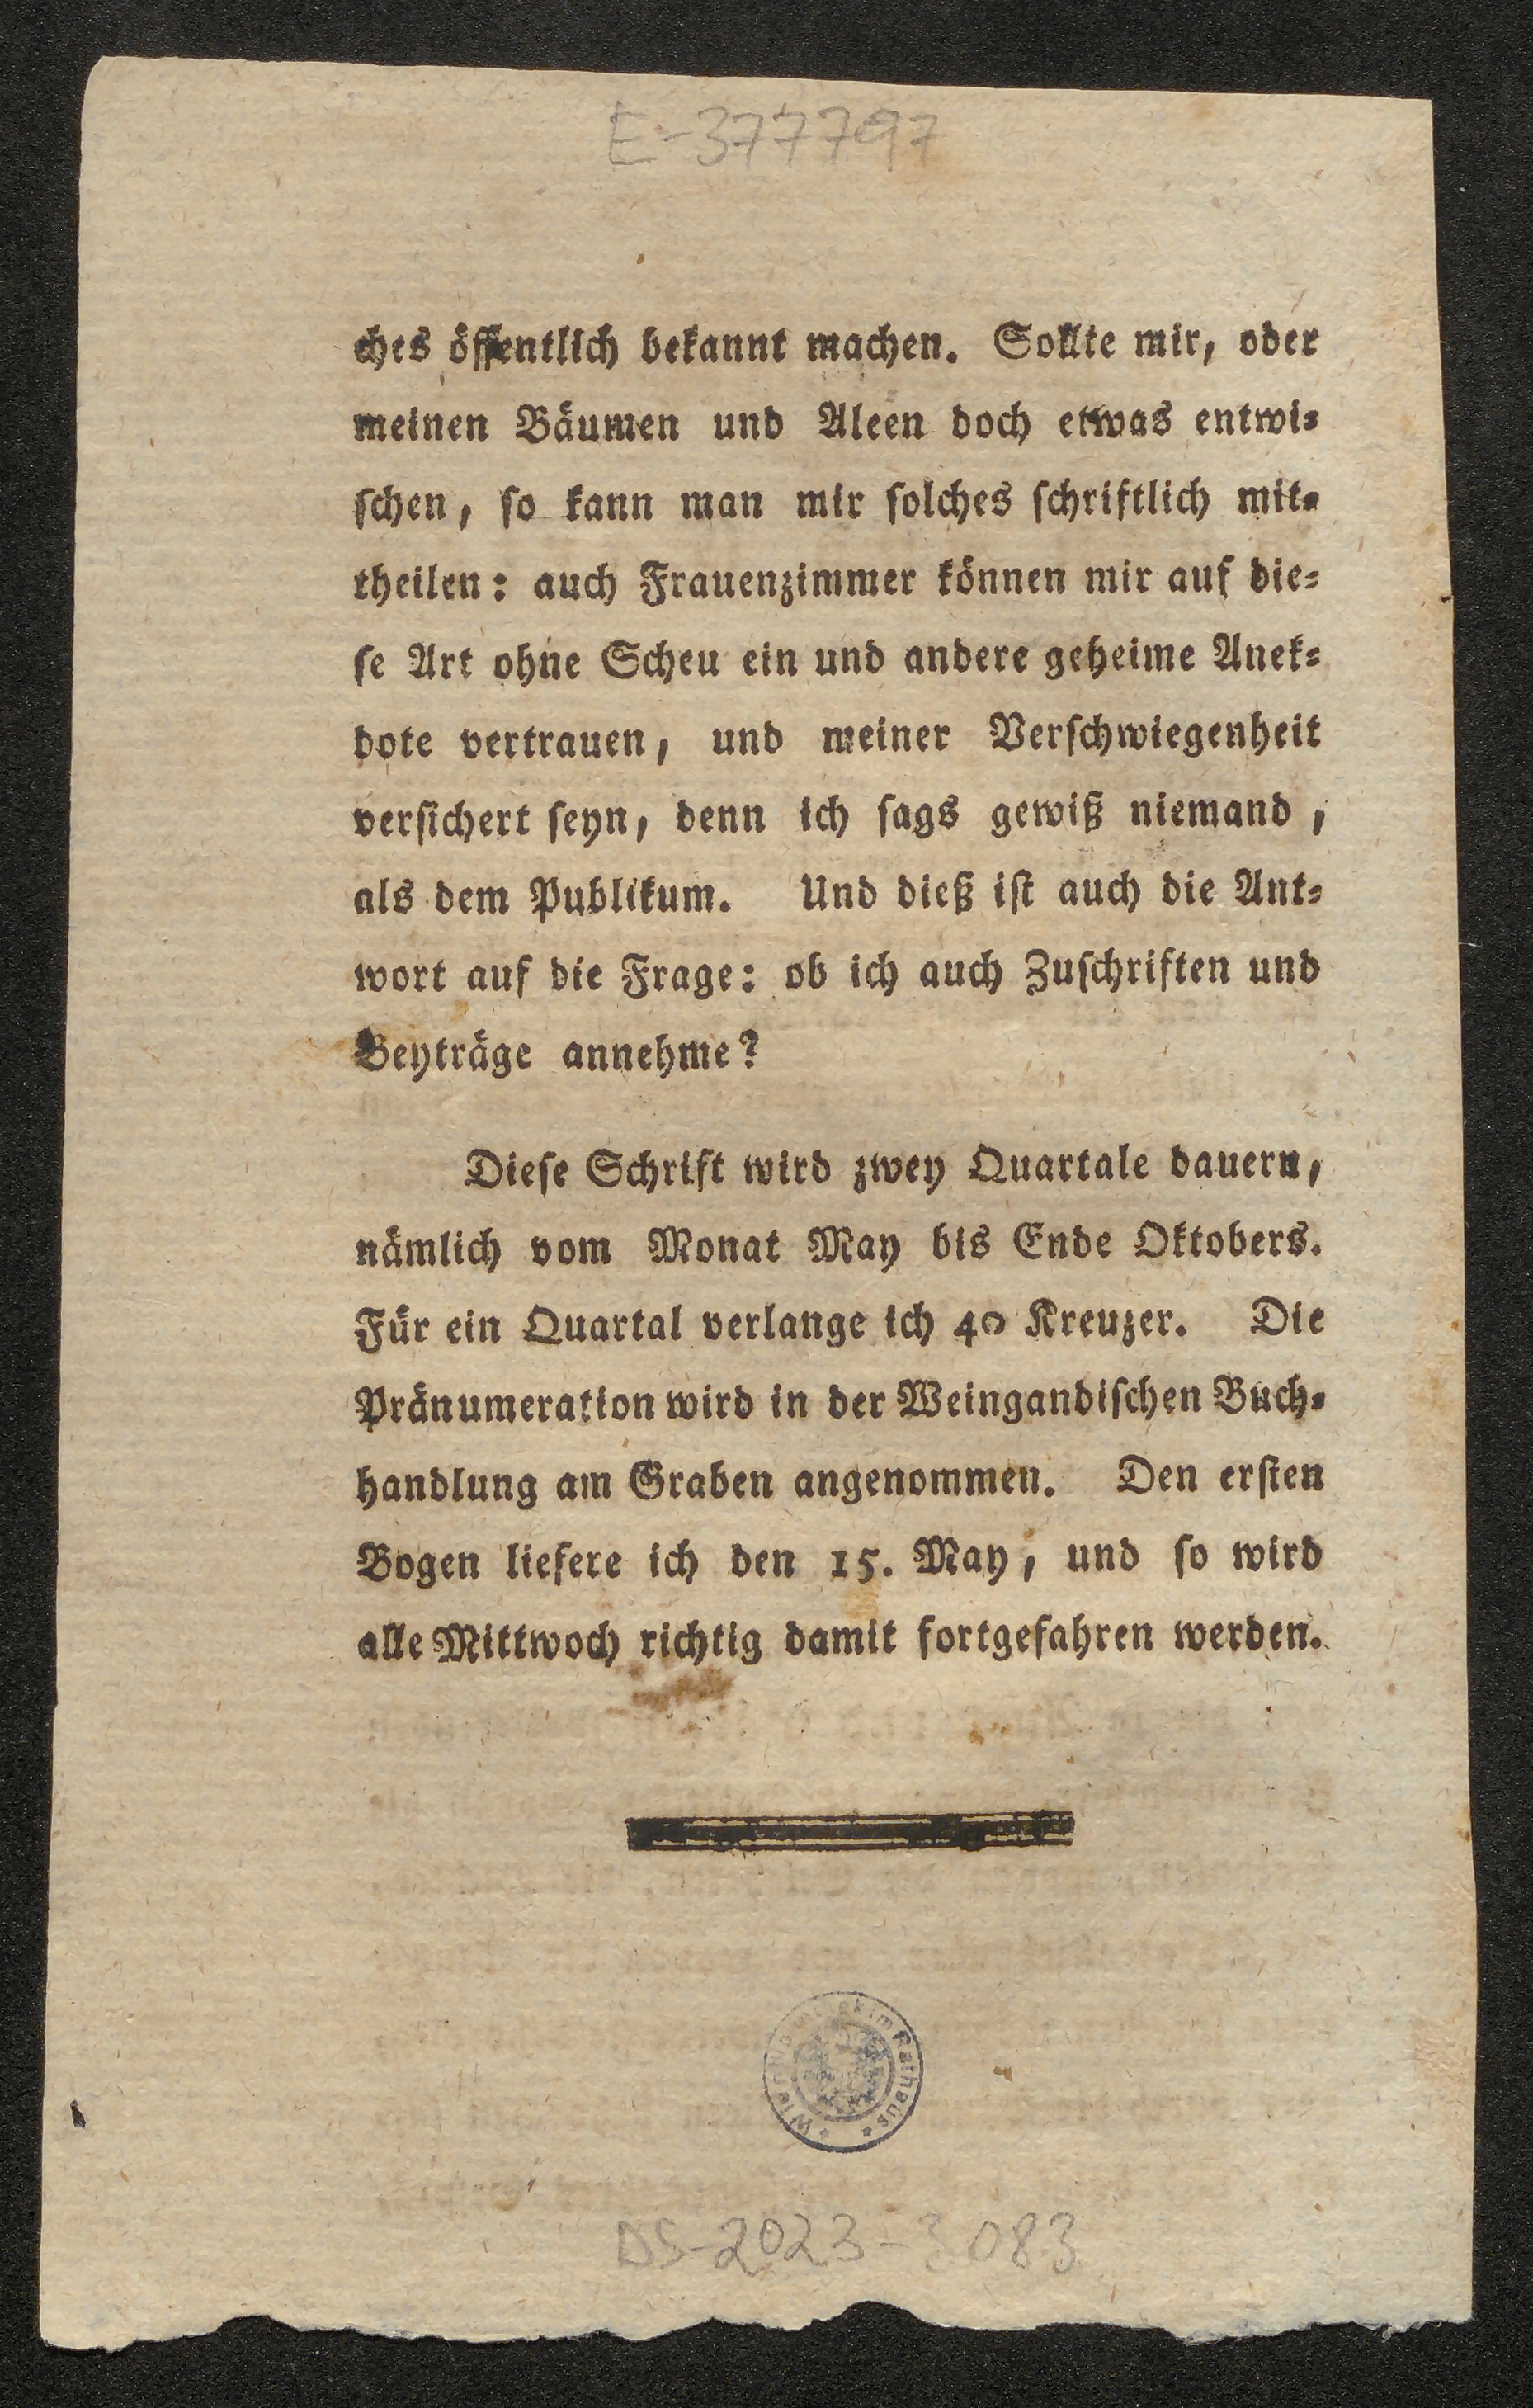 E-377797
ches öffentlich bekannt machen. Sollte mir, oder
meinen Bäumen und Aleen doch etwas entwi⸗
ſchen, ſo kann man mir ſolches ſchriftlich mit⸗
theilen: auch Frauenzimmer können mir auf die⸗
ſe Art ohne Scheu ein und andere geheime Anek⸗
dote vertrauen, und meiner Verſchwiegenheit
verſichert ſeyn, denn ich ſags gewiß niemand,
als dem Publikum. Und dieß iſt auch die Ant⸗
wort auf die Frage: ob ich auch Zuſchriften und
Beyträge annehme?
Dieſe Schrift wird zwey Quartale dauern,
nämlich vom Monat May bis Ende Oktobers.
Für ein Quartal verlange ich 40 Kreuzer. Die
Pränumeration wird in der Weingandiſchen Buch⸗
handlung am Graben angenommen. Den erſten
Bogen liefere ich den 15. May, und ſo wird
alle Mittwoch richtig damit fortgefahren werden.
im Rathaus
DS-2023-3083